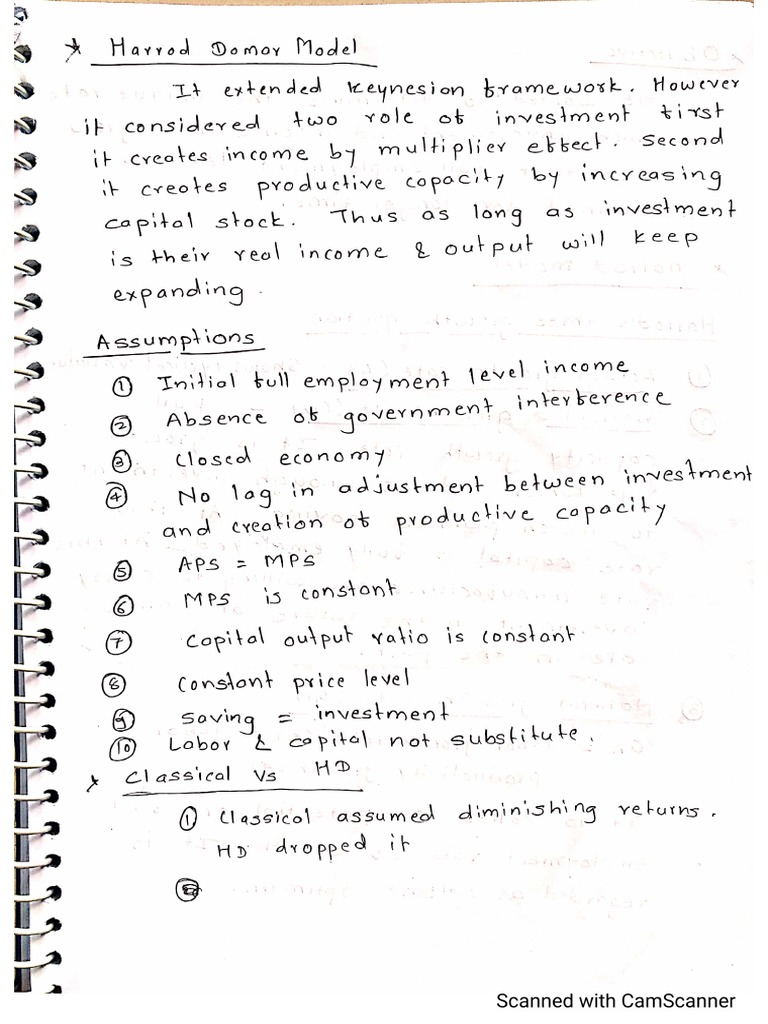 * Harrod Domar Model
It extended Keynesian framework. However
it considered two role of investment first
it creates income by multiplier effect. Second
it creates productive capacity by increasing
capital stock. Thus as long as investment
is their real income & output will keep
expanding.
Assumptions
① Initial full employment level income
② Absence of government interference
③ Closed economy
④ No lag in adjustment between investment
and creation of productive capacity
⑤ APS = MPS
⑥ MPS is constant
⑦ Capital output ratio is constant
⑧ Constant price level
⑨ Saving = investment
⑩ Labor & capital not substitute.
* Classical Vs HD
① Classical assumed diminishing returns.
HD dropped it
Scanned with CamScanner